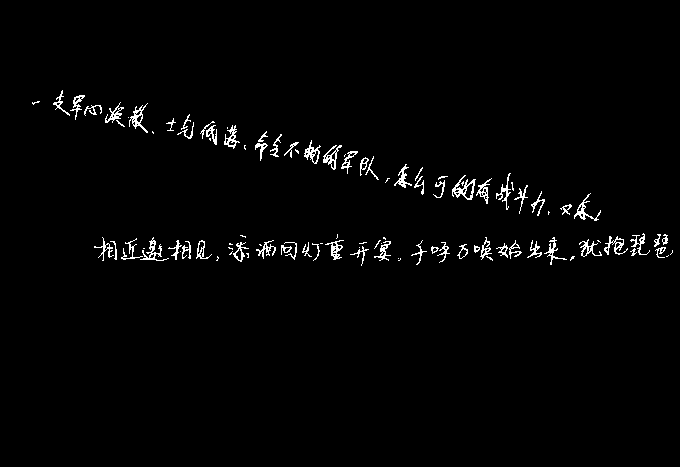 一支军心涣散、士气低落、命令不畅的军队,怎么可能有战斗力,又怎么
相近邀相见,添酒回灯重开宴。千呼万唤始出来,犹抱琵琶